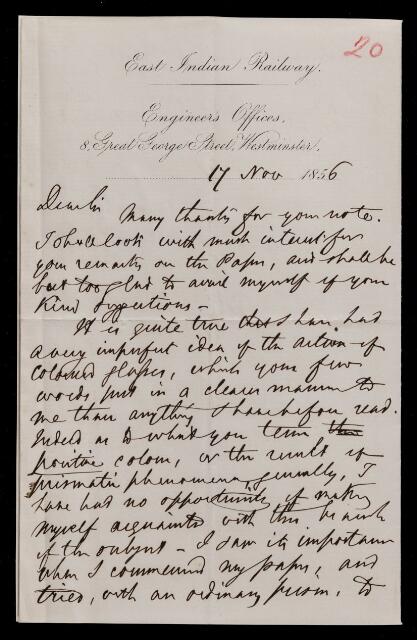 20
East Indian Railway.
Engineer's Offices,
8, Great George Street, Westminster.
17 Nov 1856
Dear Sir Many thanks for your note.
I shall look with much interest for
your remarks on the Paper, and shall be
but too glad to avail myself of your
kind suggestions —
It is quite true that I have had
a very imperfect idea of the action of
coloured glasses, which your few
words put in a clearer manner to
me than anything I have before read.
Indeed as to what you term
positive colour, or the result of
prismatic phenomena generally, I
have had no opportunity of making
myself acquainted with this branch
of the subject — I saw its importance
when I commenced my paper, and
tried, with an ordinary prism, to